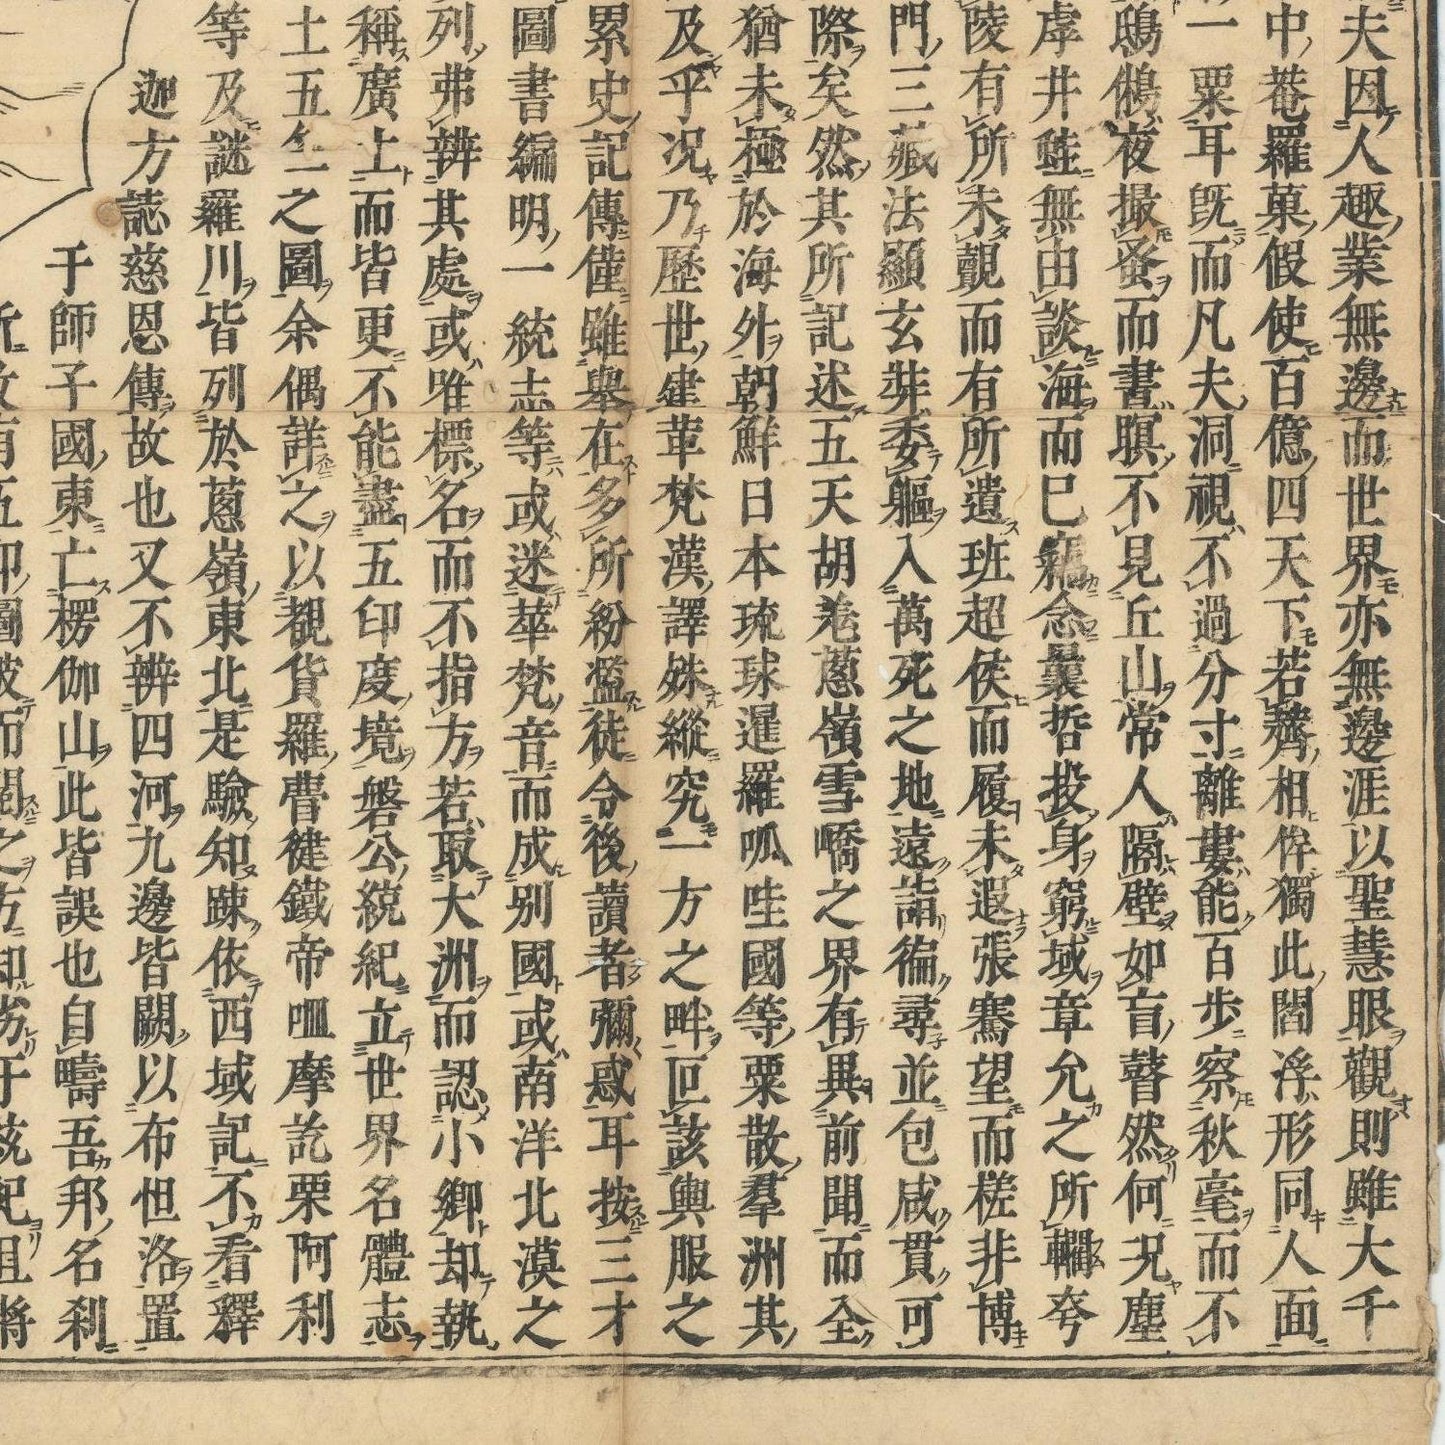 夫因人趣業無邊而世界亦無邊涯以聖慧眼觀則雖大千
中菴羅菓假使百億四天下若薺相侔獨此閻浮形同人面
一粟耳既而凡夫洞視不過分寸離婁能百步察秋毫而不
鴟鵂夜撮蚤而書瞑不見丘山常人隔壁如盲瞽然何況塵
虖井蛙無由談海而已竊念曩哲投身窮域章允之所轥夸
陵有所未覿而有所遺班超侯而履未遐張騫望而槎非博
門三藏法顯玄奘委軀入萬死之地遠詣徧尋並包咸貫可
際矣然其所記述五天胡羌蔥嶺雪嶠之界有異前聞而全
猶未極於海外朝鮮日本琉球暹羅呱哇國等粟散羣洲其
及乎況乃歷世建革梵漢譯殊縱究一方之畔叵該輿服之
累史記傳僅雖舉在多所紛濫徒令後讀者彌惑耳按三才
圖書編明一統志等或迷華梵音而成別國或南洋北漠之
列弗辨其處或唯標名而不指方若取大洲而認小鄉却執
稱廣上而皆更不能盡五印度境磐公統紀立世界名體志
土五竺之圖余偶詳之以覩貨羅曹健鐵帝呬摩訖栗阿利
等及謎羅川皆列於蔥嶺東北是驗知踈依西域記不看釋
迦方誌慈恩傳故也又不辨四河九邊皆闕以布怛洛置
于師子國東亡楞伽山此皆誤也自疇吾邦名剎